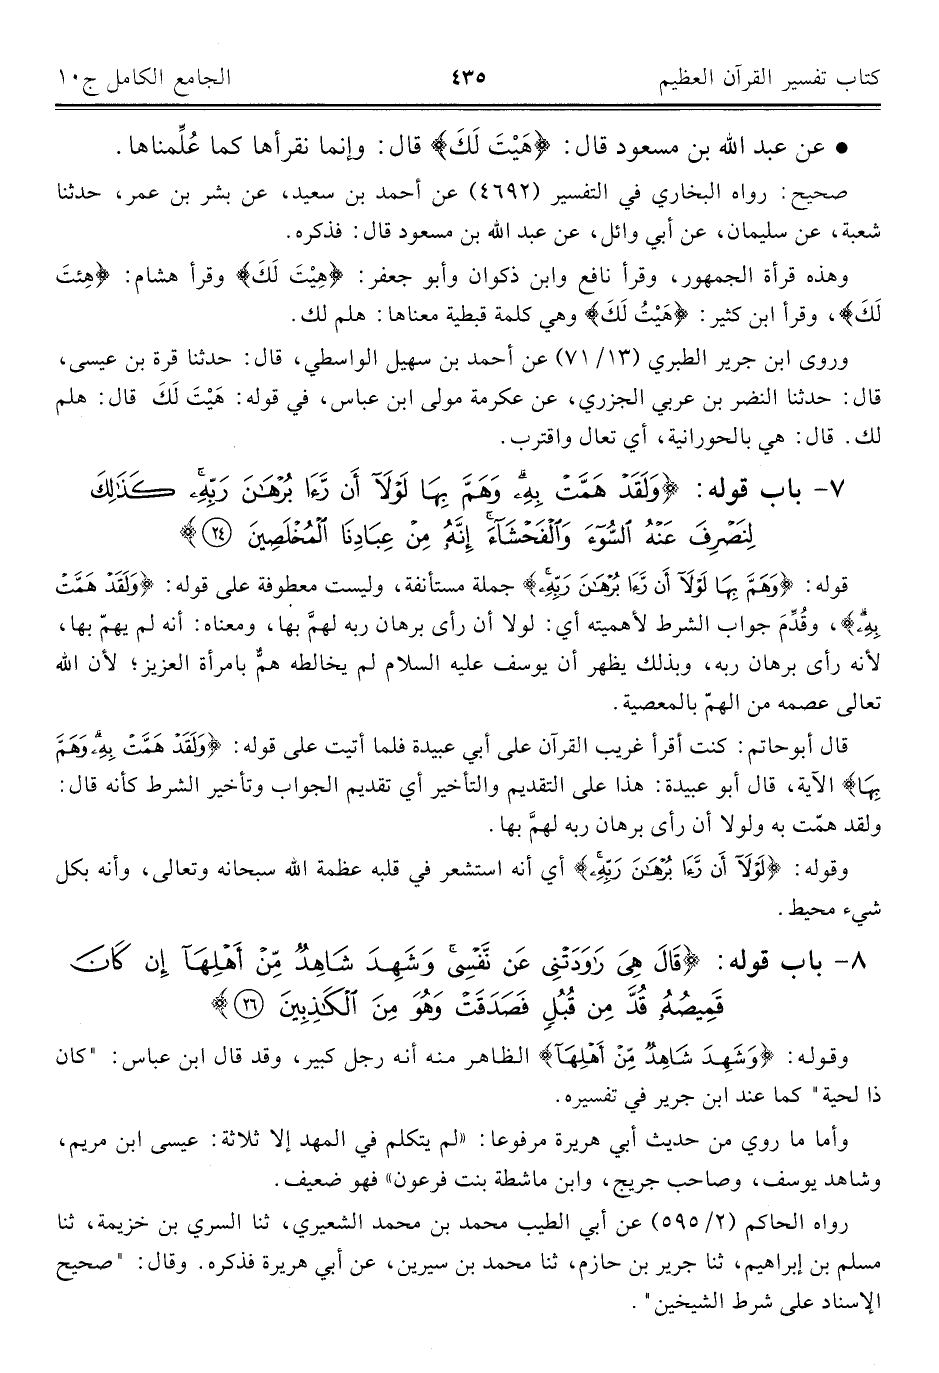 كتاب تفسير القرآن العظيم ٤٣٥ الجامع الكامل ج١٠
● عن عبد الله بن مسعود قال: ﴿هَيْتَ لَكَ﴾ قال: وإنما نقرأها كما عُلِّمناها.
صحيح: رواه البخاري في التفسير (٤٦٩٢) عن أحمد بن سعيد، عن بشر بن عمر، حدثنا
شعبة، عن سليمان، عن أبي وائل، عن عبد الله بن مسعود قال: فذكره.
وهذه قرأة الجمهور، وقرأ نافع وابن ذكوان وأبو جعفر: ﴿هِيْتَ لَكَ﴾ وقرأ هشام: ﴿هِئتَ
لَكَ﴾، وقرأ ابن كثير: ﴿هَيْتُ لَكَ﴾ وهي كلمة قبطية معناها: هلم لك.
وروى ابن جرير الطبري (١٣/ ٧١) عن أحمد بن سهيل الواسطي، قال: حدثنا قرة بن عيسى،
قال: حدثنا النضر بن عربي الجزري، عن عكرمة مولى ابن عباس، في قوله: هَيْتَ لَكَ قال: هلم
لك. قال: هي بالحورانية، أي تعال واقترب.
٧- باب قوله: ﴿وَلَقَدْ هَمَّتْ بِهِۦۖ وَهَمَّ بِهَا لَوْلَآ أَن رَّءَا بُرْهَـٰنَ رَبِّهِۦۚ كَذَٰلِكَ
لِنَصْرِفَ عَنْهُ ٱلسُّوٓءَ وَٱلْفَحْشَآءَۚ إِنَّهُۥ مِنْ عِبَادِنَا ٱلْمُخْلَصِينَ ٢٤﴾
قوله: ﴿وَهَمَّ بِهَا لَوْلَآ أَن رَّءَا بُرْهَـٰنَ رَبِّهِۦۚ﴾ جملة مستأنفة، وليست معطوفة على قوله: ﴿وَلَقَدْ هَمَّتْ
بِهِۦۖ﴾، وقُدِّمَ جواب الشرط لأهميته أي: لولا أن رأى برهان ربه لهمَّ بها، ومعناه: أنه لم يهمّ بها،
لأنه رأى برهان ربه، وبذلك يظهر أن يوسف عليه السلام لم يخالطه همٌّ بامرأة العزيز؛ لأن الله
تعالى عصمه من الهمّ بالمعصية.
قال أبوحاتم: كنت أقرأ غريب القرآن على أبي عبيدة فلما أتيت على قوله: ﴿وَلَقَدْ هَمَّتْ بِهِۦۖ وَهَمَّ
بِهَا﴾ الآية، قال أبو عبيدة: هذا على التقديم والتأخير أي تقديم الجواب وتأخير الشرط كأنه قال:
ولقد همّت به ولولا أن رأى برهان ربه لهمَّ بها.
وقوله: ﴿لَوْلَآ أَن رَّءَا بُرْهَـٰنَ رَبِّهِۦۚ﴾ أي أنه استشعر في قلبه عظمة الله سبحانه وتعالى، وأنه بكل
شيء محيط.
٨- باب قوله: ﴿قَالَ هِىَ رَٰوَدَتْنِى عَن نَّفْسِىۚ وَشَهِدَ شَاهِدٌ مِّنْ أَهْلِهَآ إِن كَانَ
قَمِيصُهُۥ قُدَّ مِن قُبُلٍ فَصَدَقَتْ وَهُوَ مِنَ ٱلْكَـٰذِبِينَ ٢٦﴾
وقوله: ﴿وَشَهِدَ شَاهِدٌ مِّنْ أَهْلِهَآ﴾ الظاهر منه أنه رجل كبير، وقد قال ابن عباس: "كان
ذا لحية" كما عند ابن جرير في تفسيره.
وأما ما روي من حديث أبي هريرة مرفوعا: «لم يتكلم في المهد إلا ثلاثة: عيسى ابن مريم،
وشاهد يوسف، وصاحب جريج، وابن ماشطة بنت فرعون» فهو ضعيف.
رواه الحاكم (٢/ ٥٩٥) عن أبي الطيب محمد بن محمد الشعيري، ثنا السري بن خزيمة، ثنا
مسلم بن إبراهيم، ثنا جرير بن حازم، ثنا محمد بن سيرين، عن أبي هريرة فذكره. وقال: "صحيح
الإسناد على شرط الشيخين".